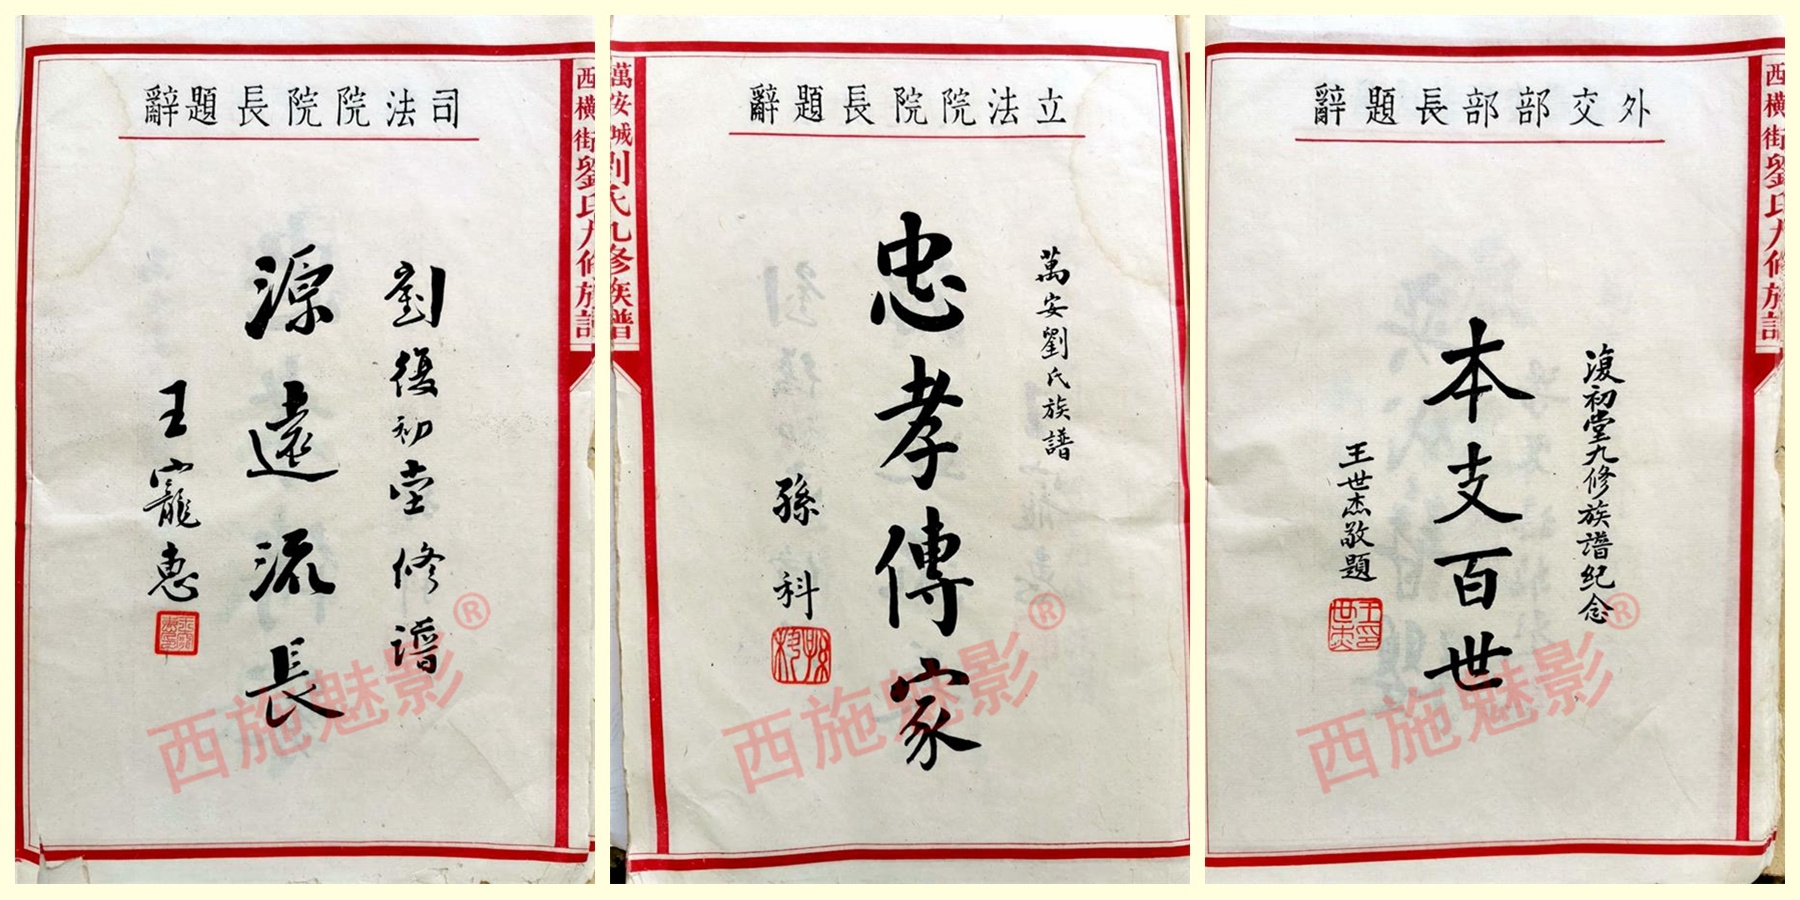 司法院院長題辭
劉復初堂修譜
源遠流長
王寵惠
西橫街劉氏九修族譜
西施魅影®
萬安城劉氏九修族譜
立法院院長題辭
萬安劉氏族譜
忠孝傳家
孫科
孫科
西施魅影®
外交部部長題辭
復初堂九修族譜紀念
本支百世
王世杰敬題
王世杰印
西橫街劉氏九修族譜
西施魅影®